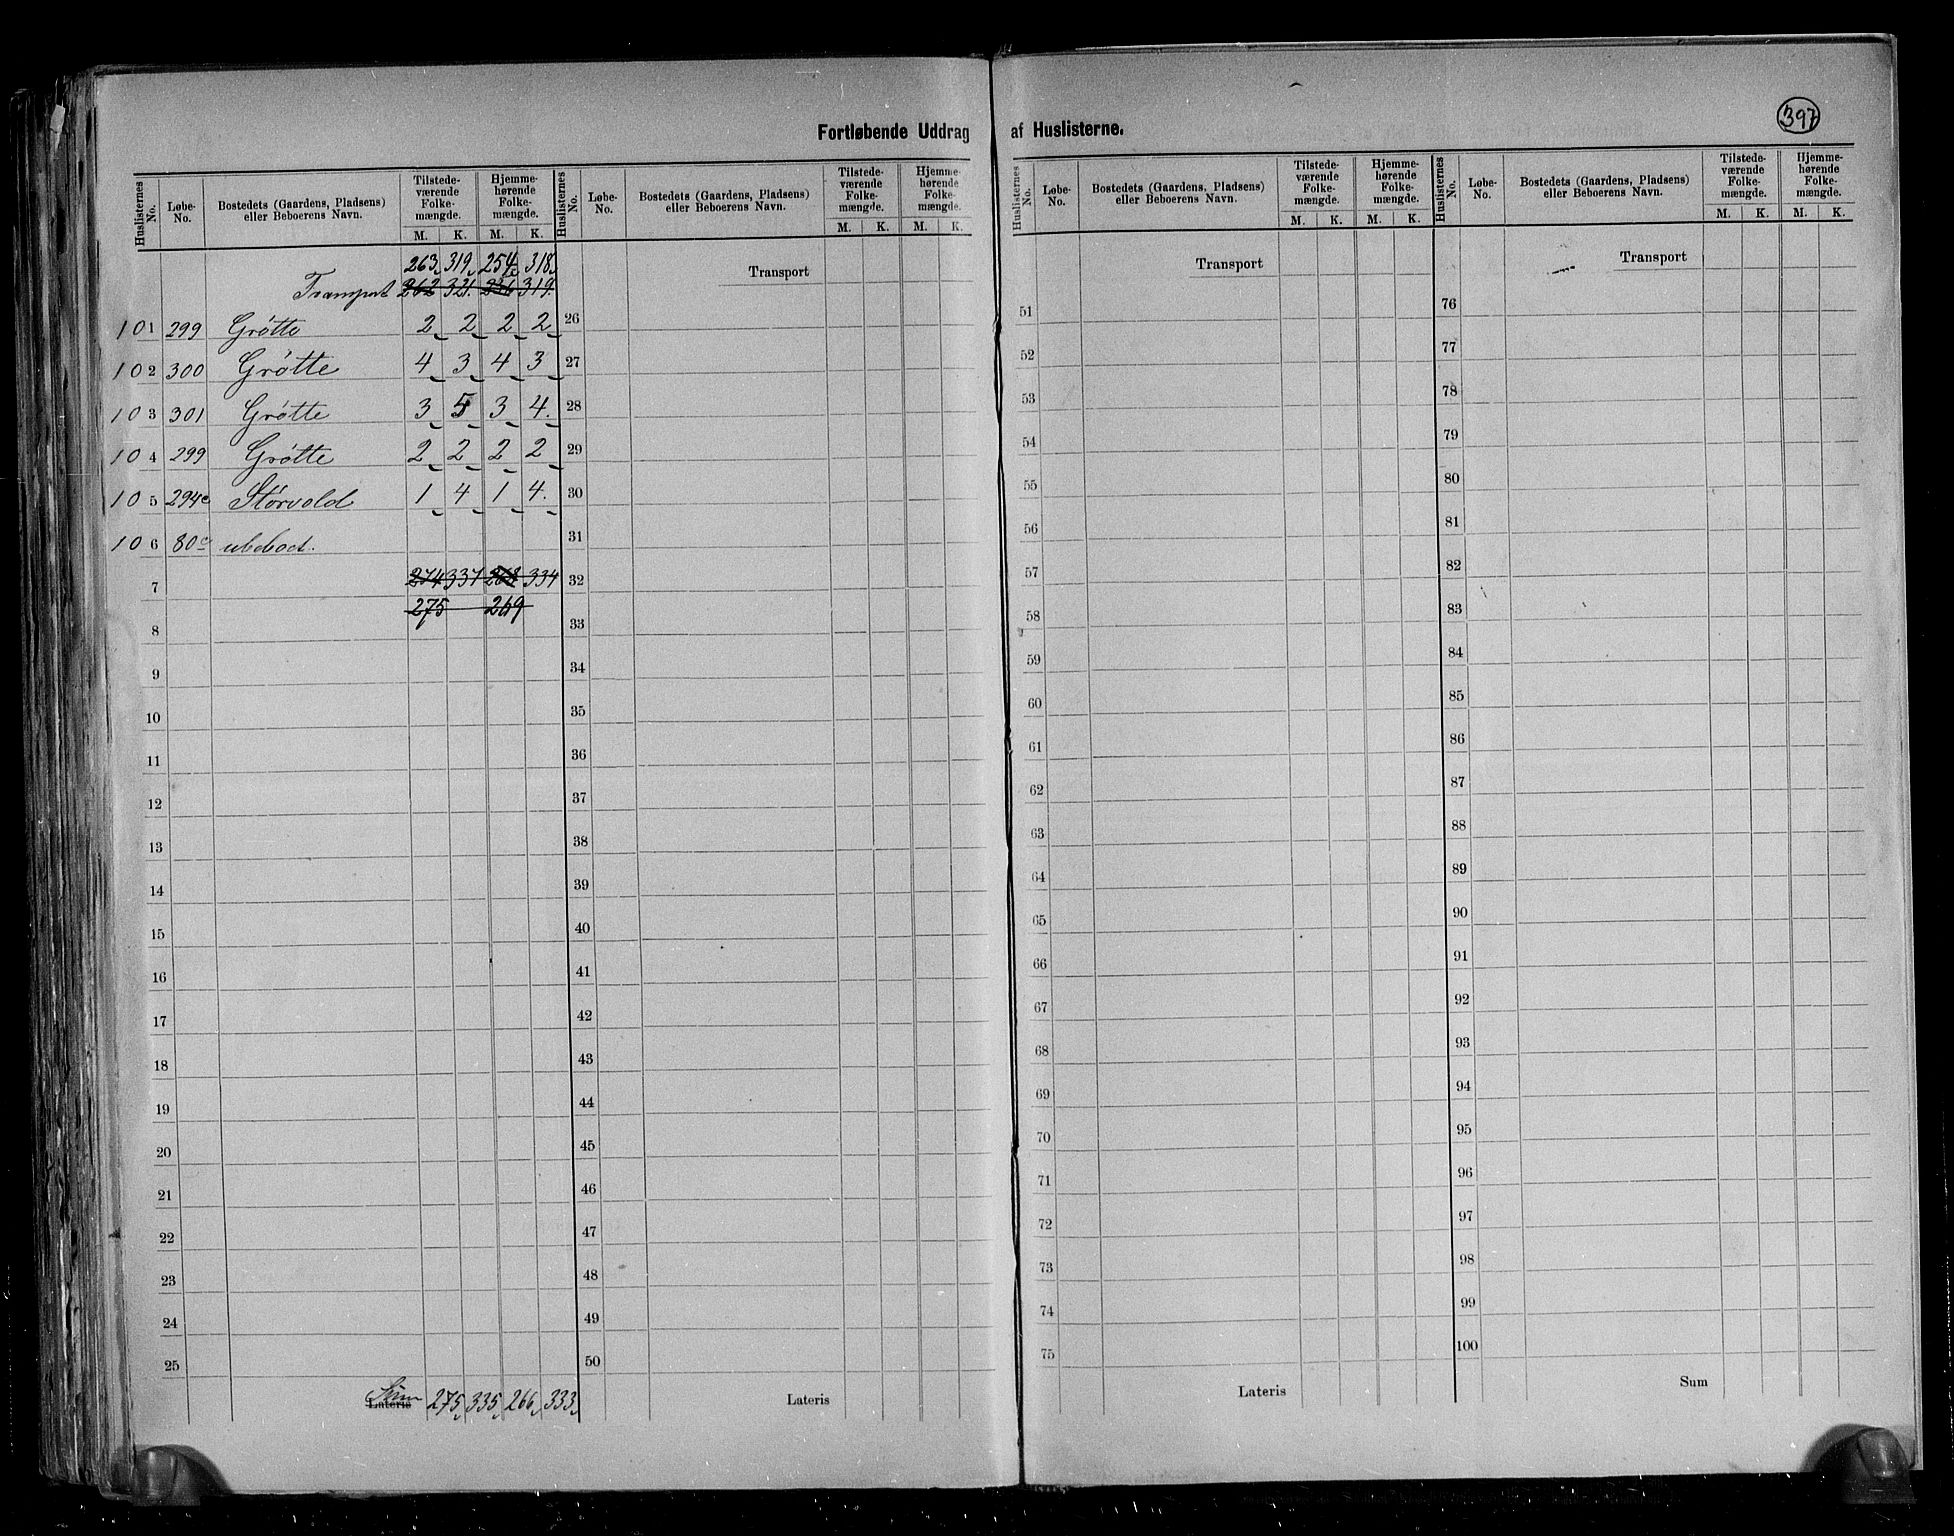 Fortløbende Uddrag af Huslisterne.
397
Huslisternes No. Løbe-No. Bostedets (Gaardens, Pladsens) eller Beboerens Navn. Tilstede-værende Folke-mængde. M. K. Hjemme-hørende Folke-mængde. M. K.
263 319 254 318
Transport 262 321. 256 319.
101 299 Grøtte 2 2 2 2
102 300 Grøtte 4 3 4 3
103 301 Grøtte 3 5 3 4.
104 299 Grøtte 2 2 2 2
105 294c Størvold 1 4 1 4.
106 80c ubeboet.
7 274 337 268 334
275 269
8
9
10
11
12
13
14
15
16
17
18
19
20
21
22
23
24
25
Sum
Lateris 275 335 266 333
Huslisternes No. Løbe-No. Bostedets (Gaardens, Pladsens) eller Beboerens Navn. Tilstede-værende Folke-mængde. M. K. Hjemme-hørende Folke-mængde. M. K.
Transport
26
27
28
29
30
31
32
33
34
35
36
37
38
39
40
41
42
43
44
45
46
47
48
49
50
Lateris
Huslisternes No. Løbe-No. Bostedets (Gaardens, Pladsens) eller Beboerens Navn. Tilstede-værende Folke-mængde. M. K. Hjemme-hørende Folke-mængde. M. K.
Transport
51
52
53
54
55
56
57
58
59
60
61
62
63
64
65
66
67
68
69
70
71
72
73
74
75
Lateris
Huslisternes No. Løbe-No. Bostedets (Gaardens, Pladsens) eller Beboerens Navn. Tilstede-værende Folke-mængde. M. K. Hjemme-hørende Folke-mængde. M. K.
Transport
76
77
78
79
80
81
82
83
84
85
86
87
88
89
90
91
92
93
94
95
96
97
98
99
100
Sum